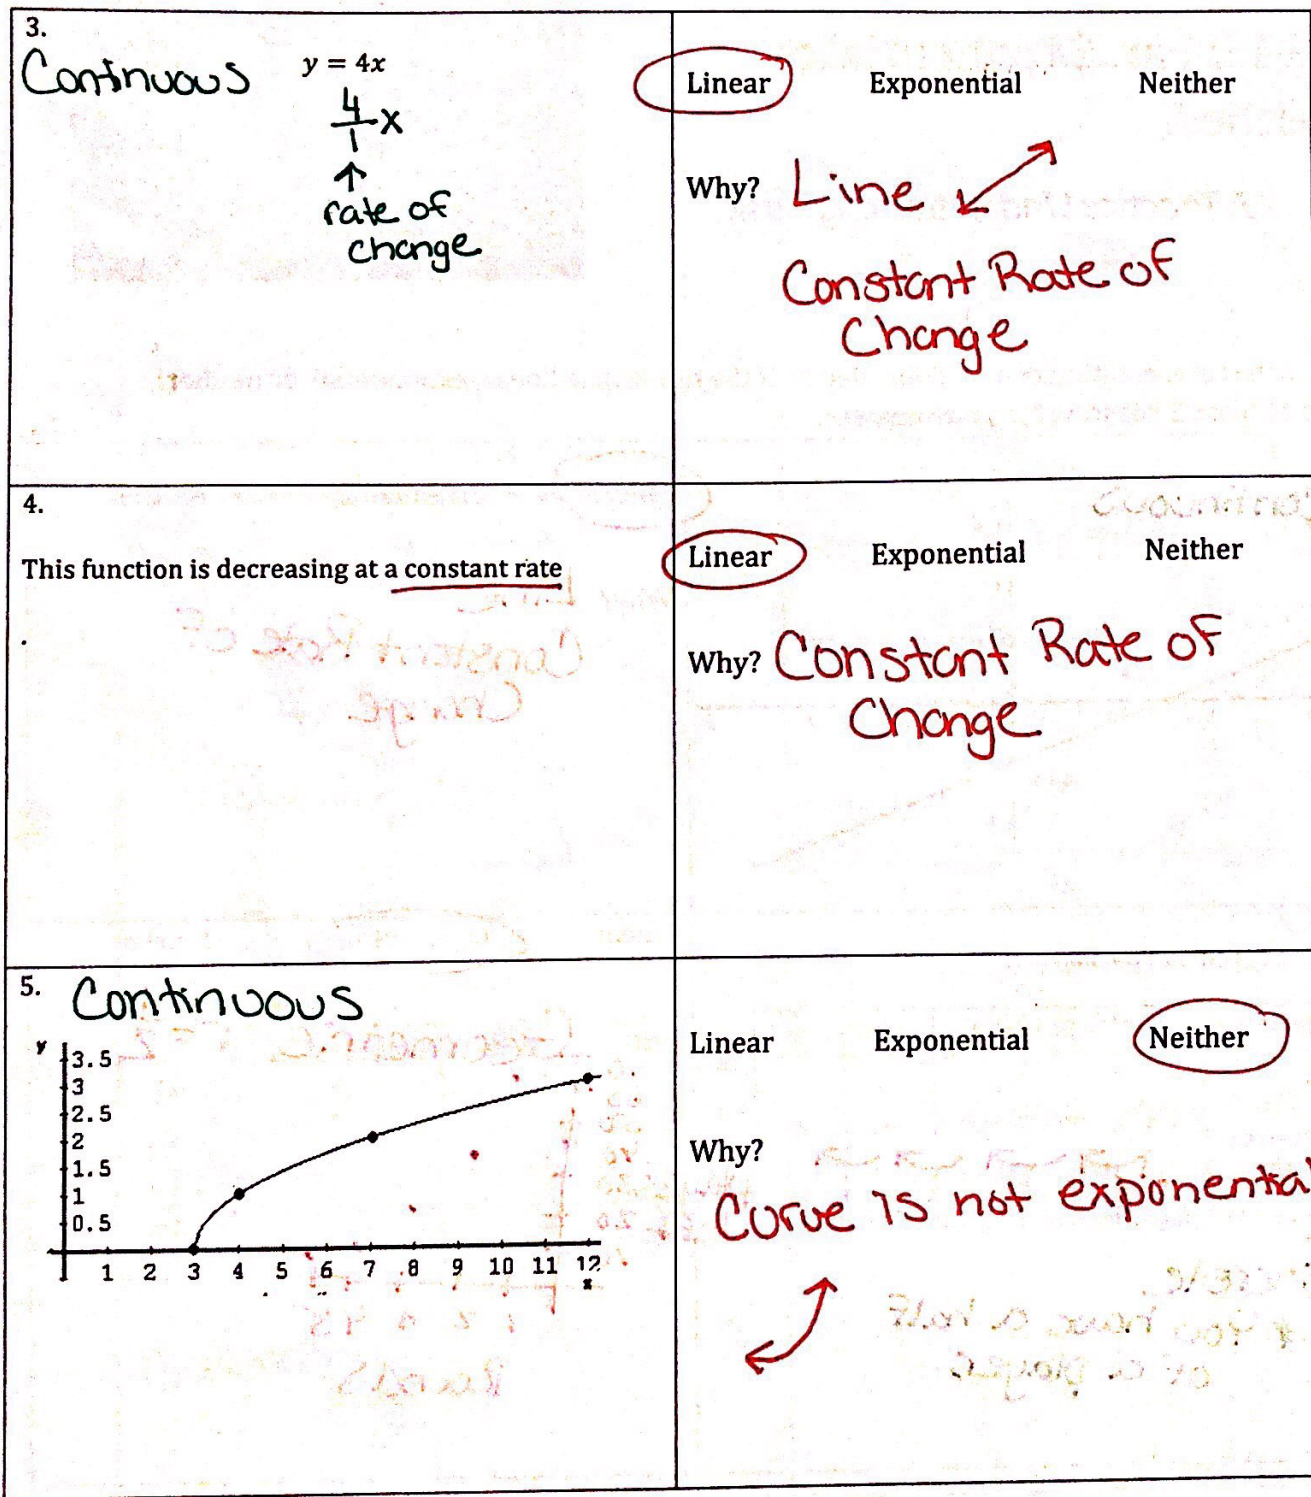 3.
Continuous
y = 4x
4/1 x
↑
rate of
change
Linear Exponential Neither
Why? Line
Constant Rate of
Change
4.
This function is decreasing at a constant rate
Linear Exponential Neither
Why? Constant Rate of
Change
5. Continuous
y
3.5
3
2.5
2
1.5
1
0.5
1 2 3 4 5 6 7 8 9 10 11 12
x
Linear Exponential Neither
Why?
Curve is not exponential